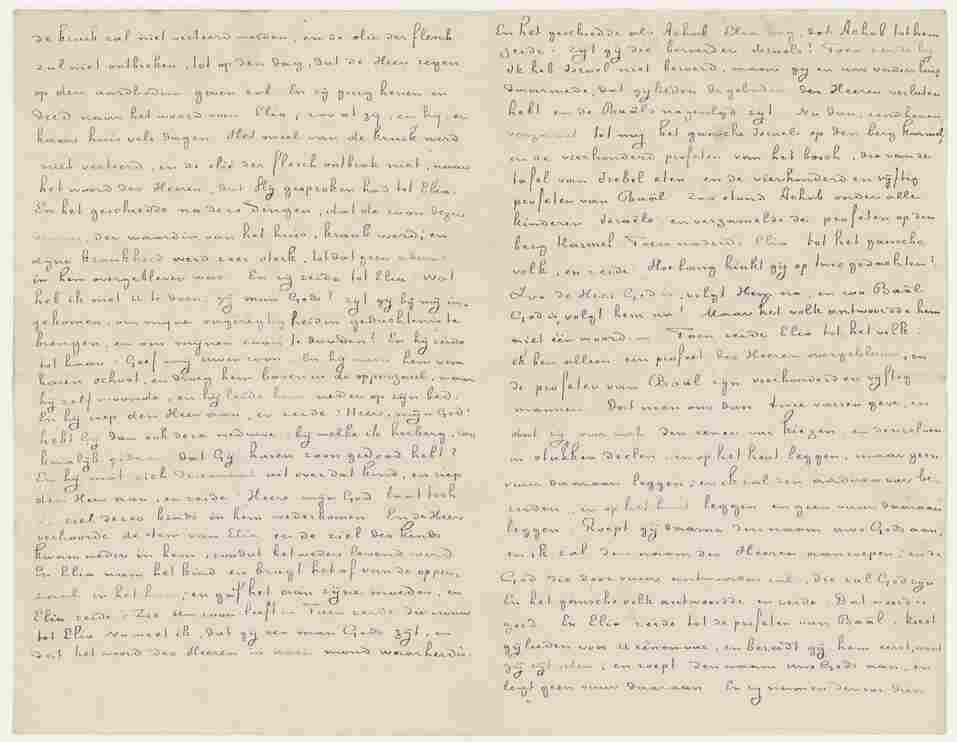 de kruik zal niet verteerd worden, en de olie der flesch
zal niet ontbreken, tot op den dag, dat de Heer regen
op den aardbodem geven zal. En zij ging henen en
deed naar het woord van Elia; zoo at zij, en hij, en
haar huis vele dagen. Het meel van de kruik werd
niet verteerd, en de olie der flesch ontbrak niet, naar
het woord des Heeren, dat Hij gesproken had tot Elia.
En het geschiedde na deze dingen, dat de zoon dezer
vrouw, der waardin van het huis, krank werd; en
zijne krankheid werd zeer sterk, totdat geen adem
in hem overgebleven was. En zij zeide tot Elia: Wat
heb ik met U te doen, gij man Gods? zijt gij bij mij in
gekomen, om mijne ongeregtigheiden gedachtenis te
brengen, en om mijnen zoon te dooden? En hij zeide
tot haar: Geef mij uwen zoon. En hij nam hem van
haren schoot, en droeg hem boven in de opperzaal, waar
hij zelf woonde, en hij leide hem neder op zijn bed.
En hij riep den Heer aan, en zeide: Heere, mijn God!
hebt Gij dan ook deze weduwe, bij welke ik herberg, zoo
kwalijk gedaan, dat Gij haren zoon gedood hebt?
En hij mat zich driemaal uit over dat kind, en riep
den Heer aan, en zeide: Heere mijn God laat toch
de ziel dezes kinds in hem wederkomen. En de Heer
verhoorde de stem van Elia, en de ziel des kinds
kwam weder in hem, zoodat het weder levend werd.
En Elia nam het kind en bragt het af van de opper,
zaal in het huis, en gaf het aan zijne moeder, en
Elia zeide: Zie uw zoon leeft. Toen zeide die vrouw
tot Elia: nu weet ik, dat gij een man Gods zijt, en
dat het woord des Heeren in uwen mond waarheid is.
En het geschiedde als Achab Elia zag, dat Achab tot hem
zeide: zijt gij die beroerder Israels? Toen zeide hij
Ik heb Israel niet beroerd, maar gij en uws vaders huis
daarmede, dat gijlieden de geboden des Heeren verlaten
hebt en de Baäls nagevolgd zijt. Nu dan, zend henen,
verzamel tot mij het gansche Israel op den berg Karmel,
en de vierhonderd profeten van het bosch, die van de
tafel van Izebel eten en de vierhonderd en vijftig
profeten van Baäl. Zoo zond Achab onder alle
kinderen Israëls en verzamelde de profeten op den
berg Karmel. Toen naderde Elia tot het gansche
volk, en zeide: Hoe lang hinkt gij op twee gedachten?
Zoo de Heer God is, volgt Hem na, en zoo Baäl
God is, volgt hem na! Maar het volk antwoordde hem
niet één woord. Toen zeide Elia tot het volk:
ik ben alleen een profeet des Heeren overgebleven, en
de profeten van Baäl zijn vierhonderd en vijftig
mannen. Dat men ons dan twee varren geve, en
dat zij voor zich den eenen var kiezen en denzelven
in stukken deelen, en op het hout leggen, maar geen
vuur daaraan leggen; en ik zal den anderen var be
reiden, en op het hout leggen en geen vuur daaraan
leggen. Roept gij daarna den naam uws Gods aan,
en ik zal den naam des Heeren aanroepen; en de
God die door vuur antwoorden zal, die zal God zijn
En het gansche volk antwoordde en zeide: Dat woord is
goed. En Elia zeide tot de profeten van Baäl: kiest
gijlieden voor U eenen var, en bereidt gij hem eerst, want
gij zijt velen; en roept den naam uws Gods aan, en
legt geen vuur daaraan. En zij namen den var dien